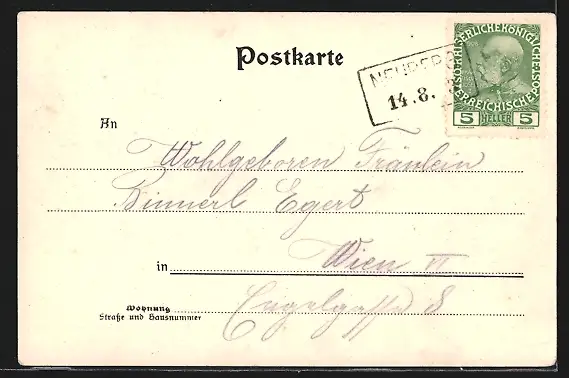 Postkarte
NEUBERG
14.8.
KAISERLICHE KÖNIGLICHE
ÖSTERREICHISCHE
5 HELLER 5
An
Wohlgeboren Fräulein
Binnerl Egert
in Wien VI
Engelgasse 8
Wohnung
Straße und Hausnummer